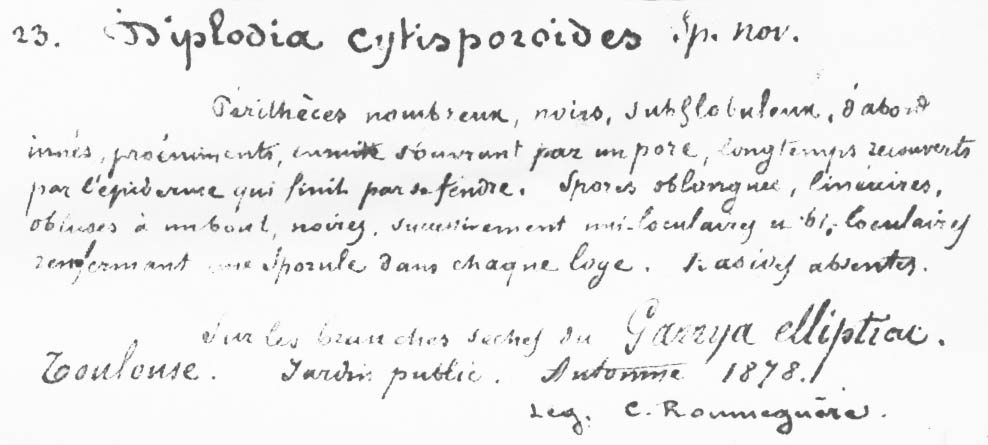 23. Diplodia cytisporoides Sp. nov.
Périthèces nombreux, noirs, subglobuleux, d'abord
innés, proéminents, ensuite s'ouvrant par un pore, longtemps recouverts
par l'épiderme qui finit par se fendre. Spores oblongues, linéaires,
obtuses à un bout, noires, successivement uni-loculaires et bi-loculaires
renfermant une sporule dans chaque loge. Basides absentes.
Sur les branches seches du Garrya elliptica.
Toulouse. Jardin public. Automne 1878.
Leg. C. Roumeguère.